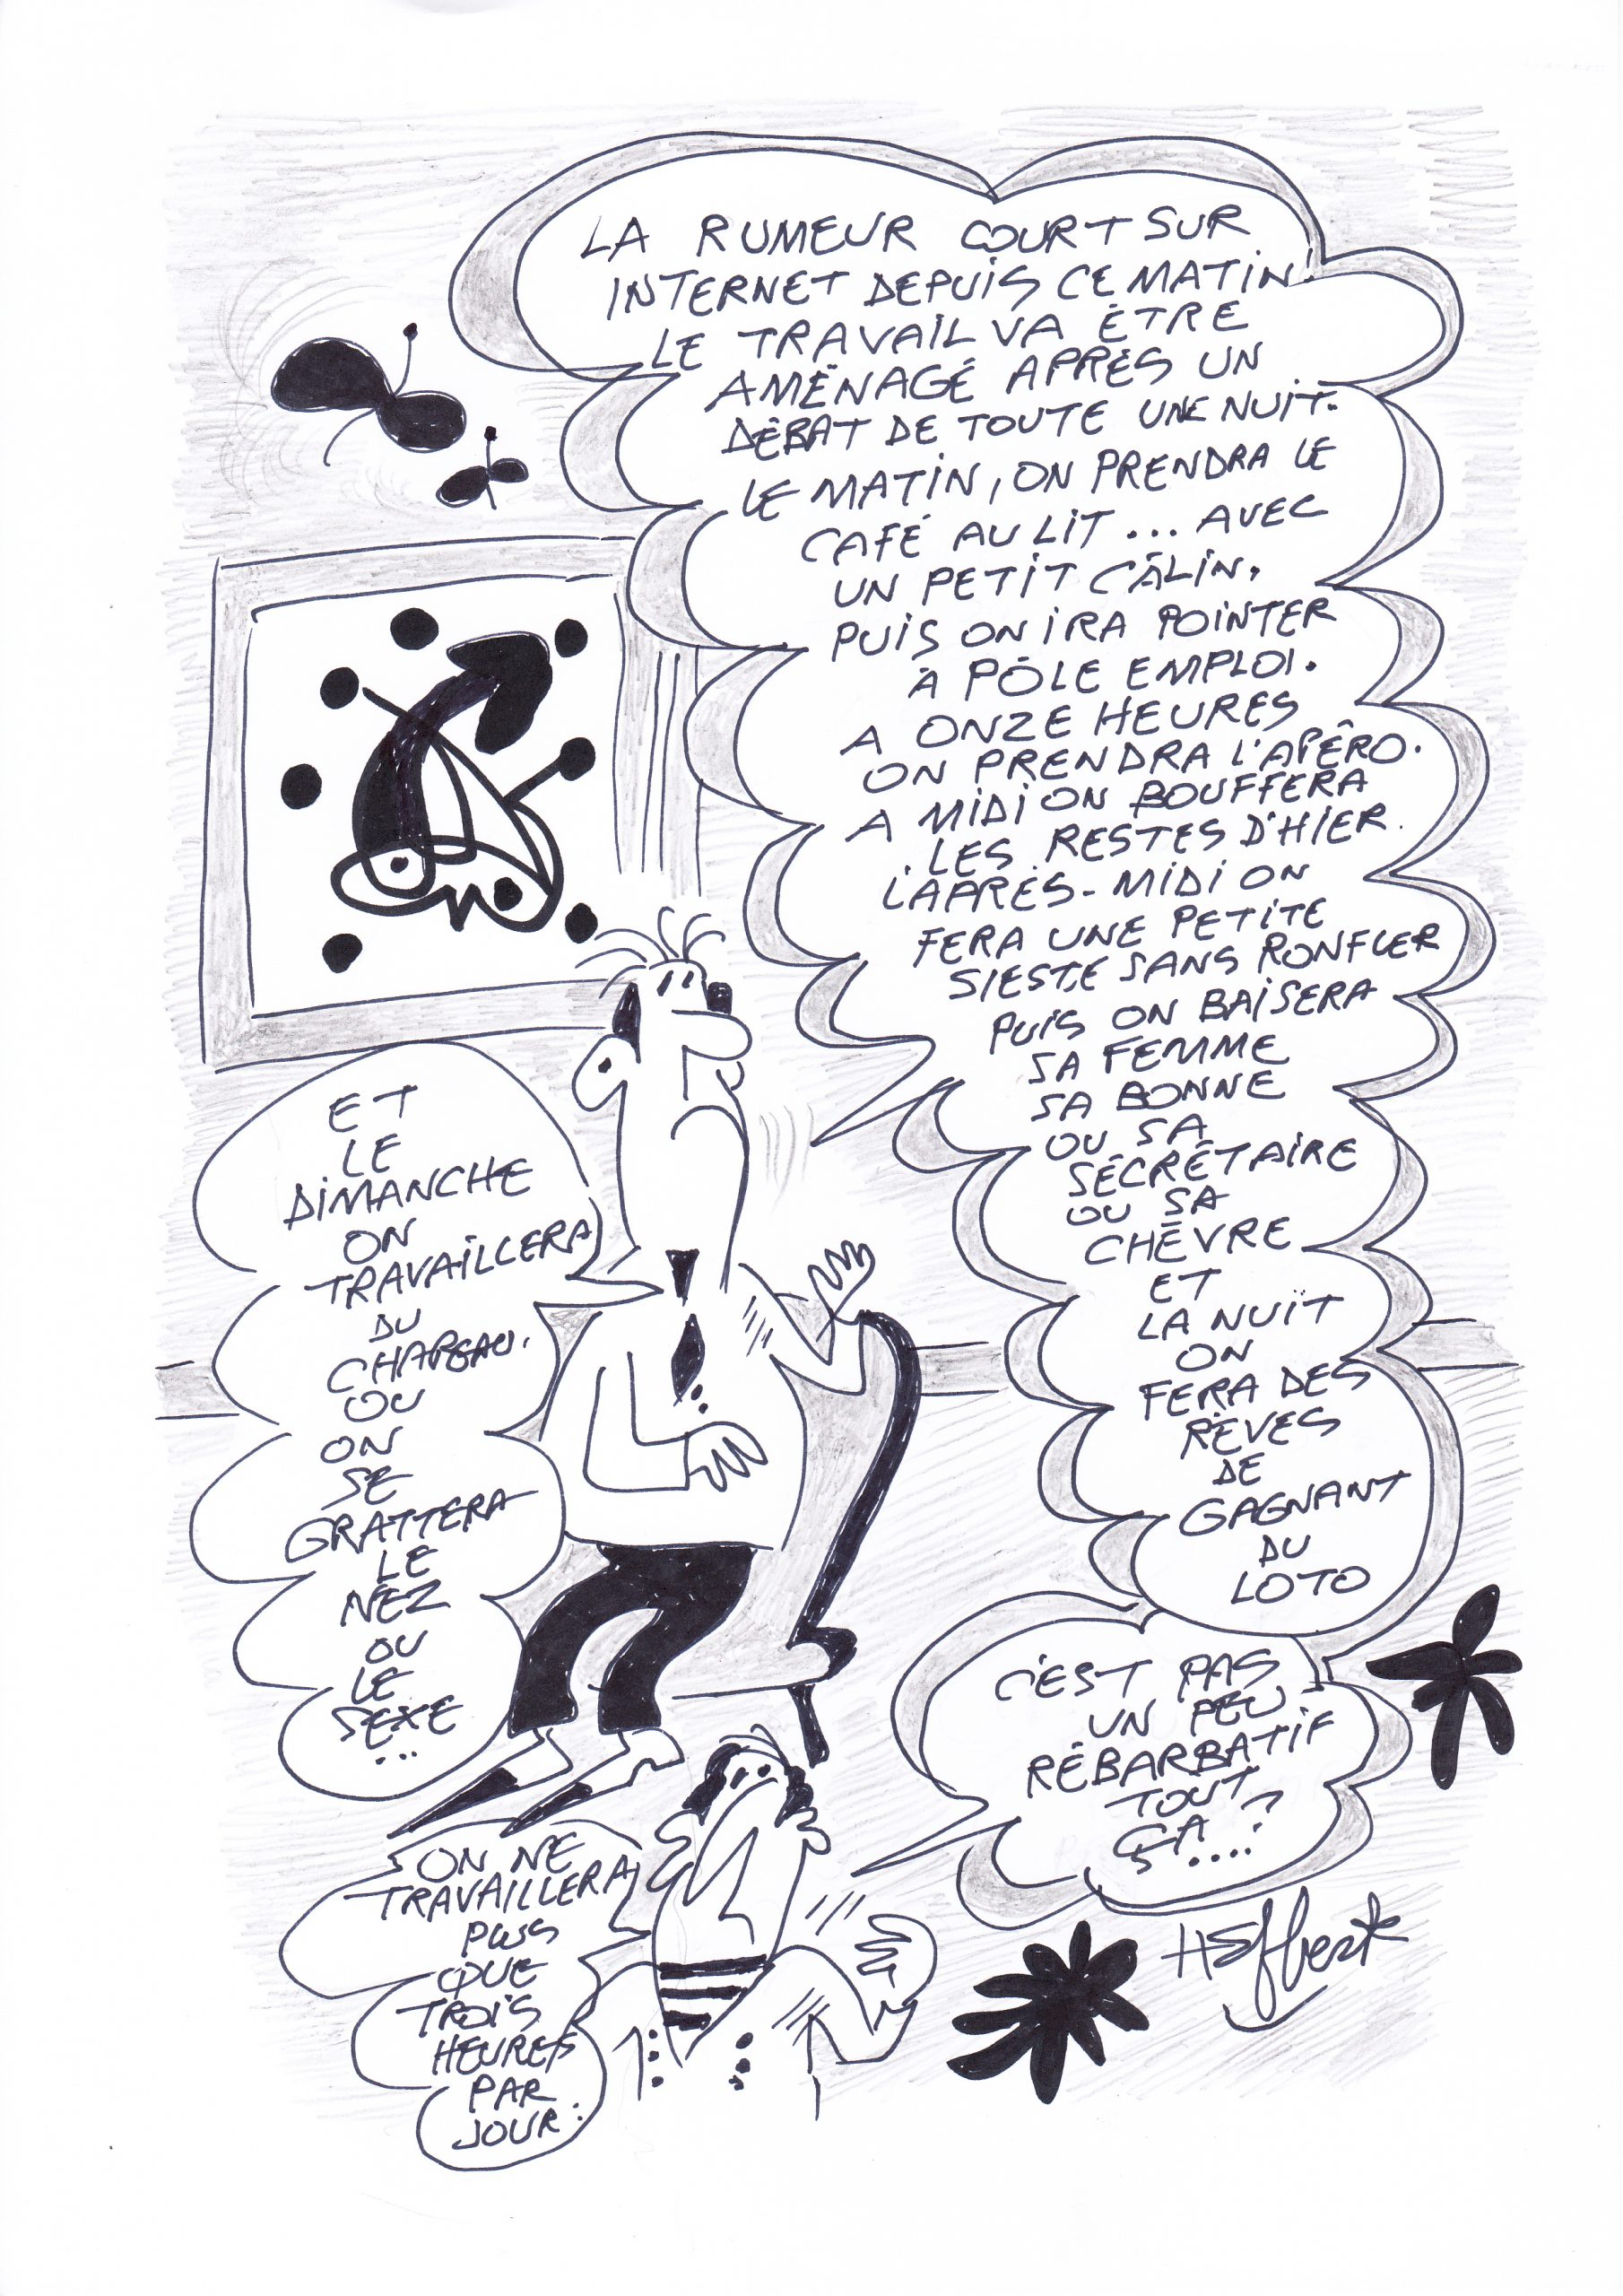 LA RUMEUR COURT SUR
INTERNET DEPUIS CE MATIN!
LE TRAVAIL VA ÊTRE
AMÉNAGÉ APRÈS UN
DÉBAT DE TOUTE UNE NUIT.
LE MATIN, ON PRENDRA LE
CAFÉ AU LIT... AVEC
UN PETIT CÂLIN.
PUIS ON IRA POINTER
À PÔLE EMPLOI.
A ONZE HEURES
ON PRENDRA L'APÉRO.
A MIDI ON BOUFFERA
LES RESTES D'HIER.
L'APRÈS-MIDI ON
FERA UNE PETITE
SIESTE SANS RONFLER
PUIS ON BAISERA
SA FEMME
SA BONNE
OU SA
SÉCRÉTAIRE
OU SA
CHÈVRE
ET
LA NUIT
ON
FERA DES
RÊVES
DE
GAGNANT
DU
LOTO
ET
LE
DIMANCHE
ON
TRAVAILLERA
DU
CHAPEAU.
OU
ON
SE
GRATTERA
LE
NEZ
OU
LE
SEXE
...
C'EST PAS
UN PEU
RÉBARBATIF
TOUT
ÇA....?
ON NE
TRAVAILLERA
PLUS
QUE
TROIS
HEURES
PAR
JOUR: